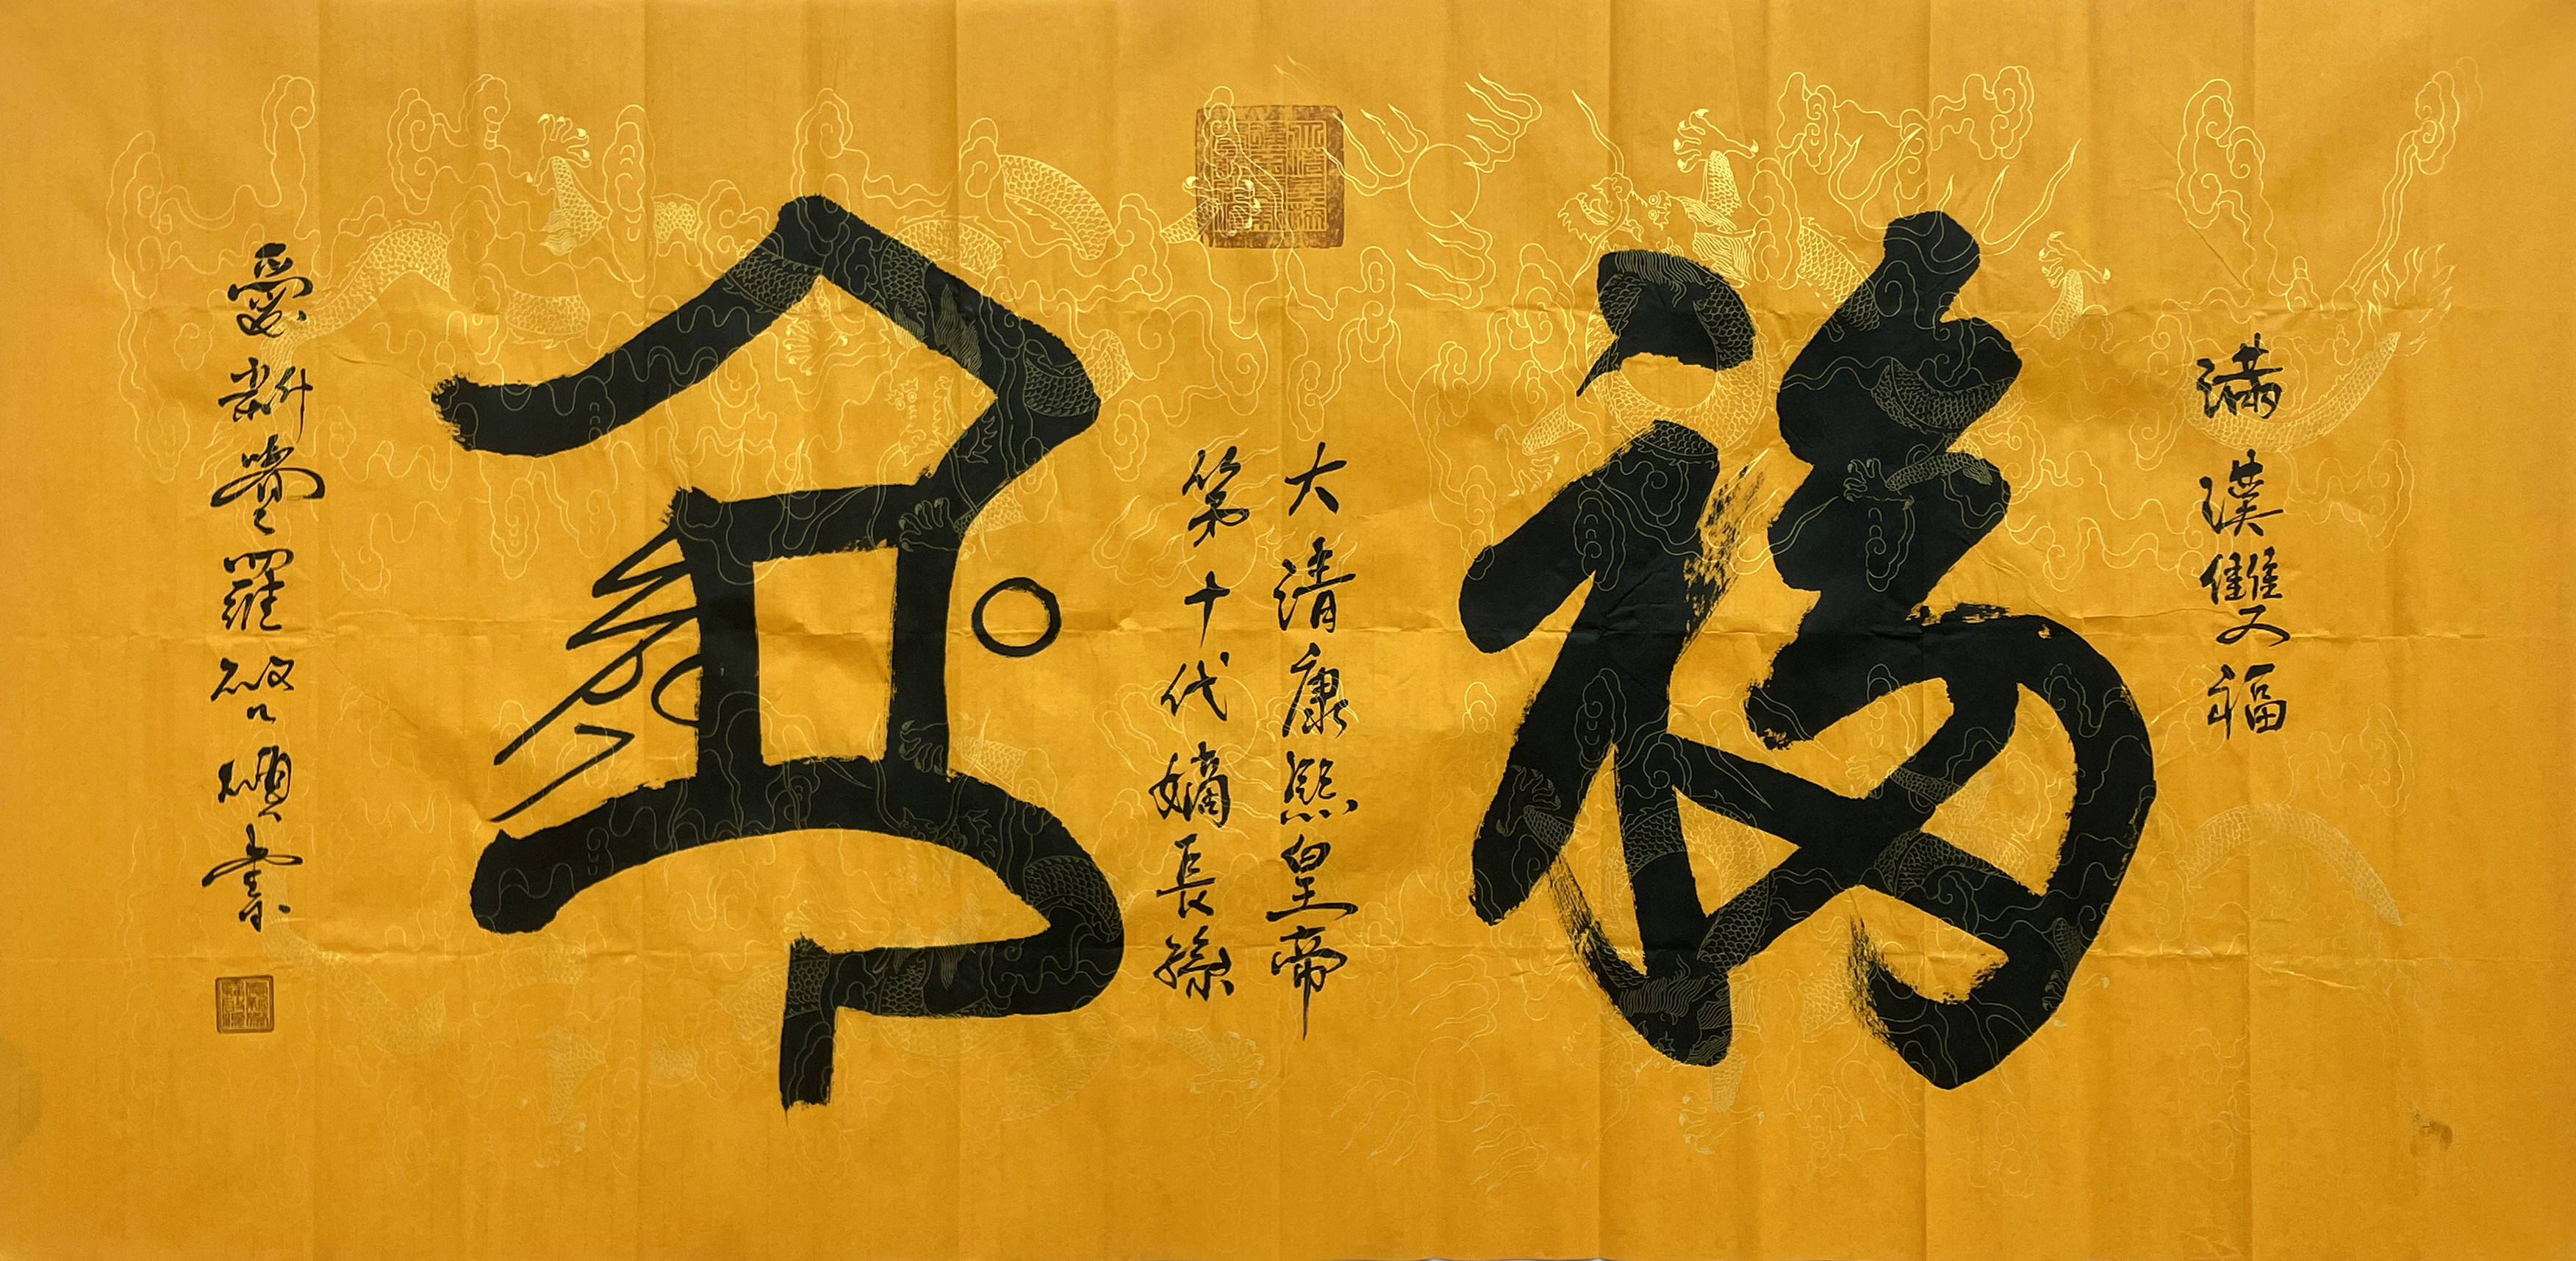 滿漢雙福
福
大清康熙皇帝
第十代嫡長孫
愛新覺羅啓碩書